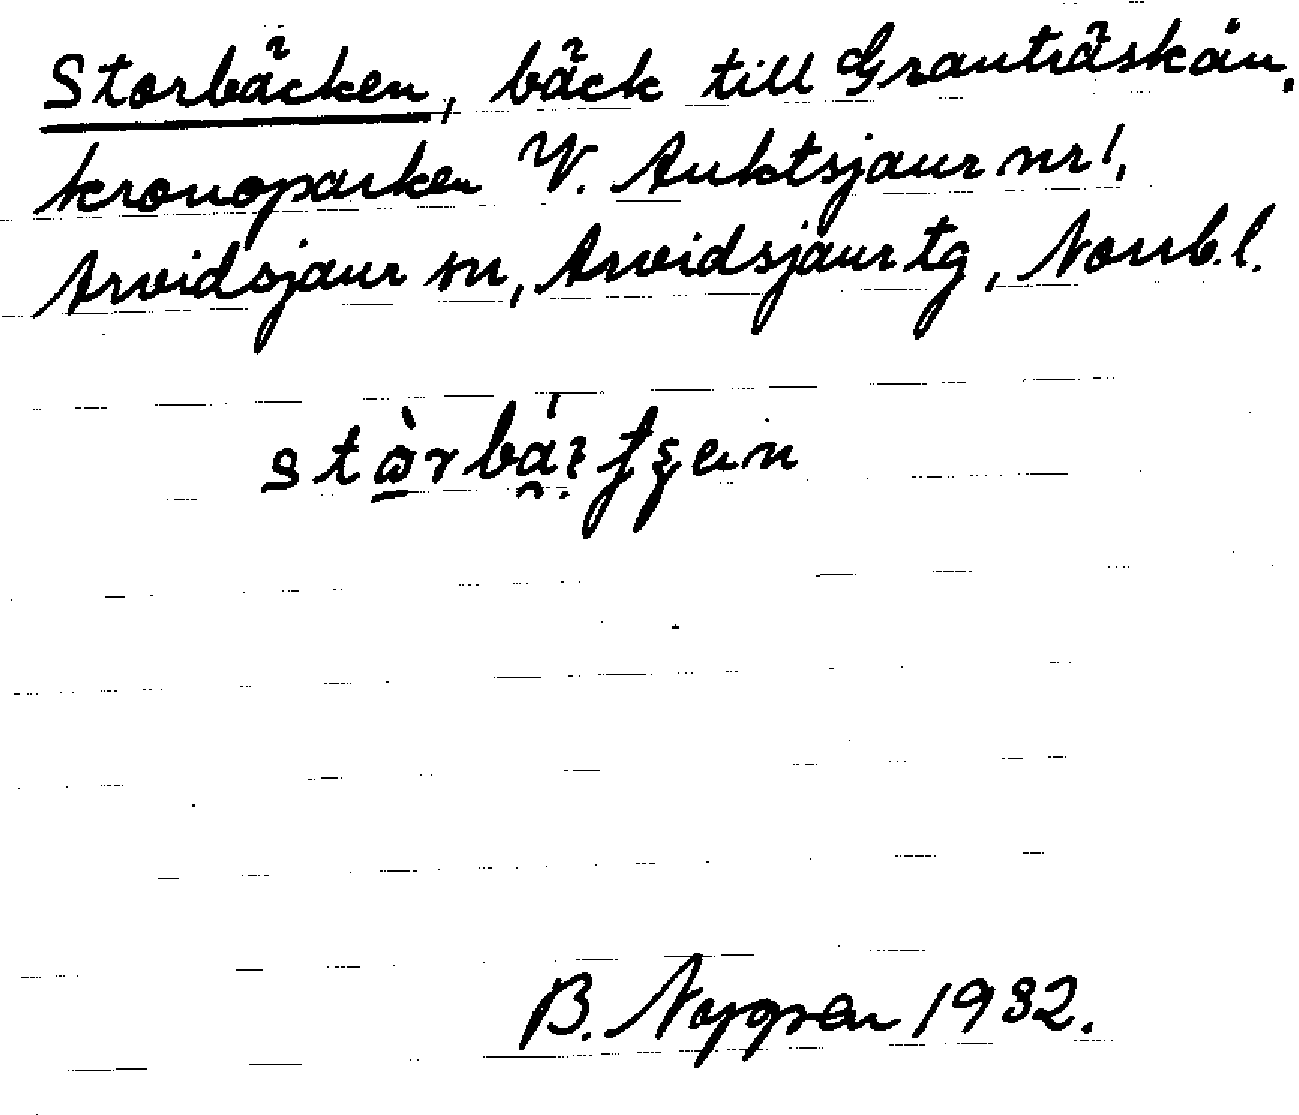 Storbäcken, bäck till Granträskån,
kronoparken V. Auktsjaur nr 1,
Arvidsjaur sn, Arvidsjaur tg, Norrb. l.
B. Nygren 1932.